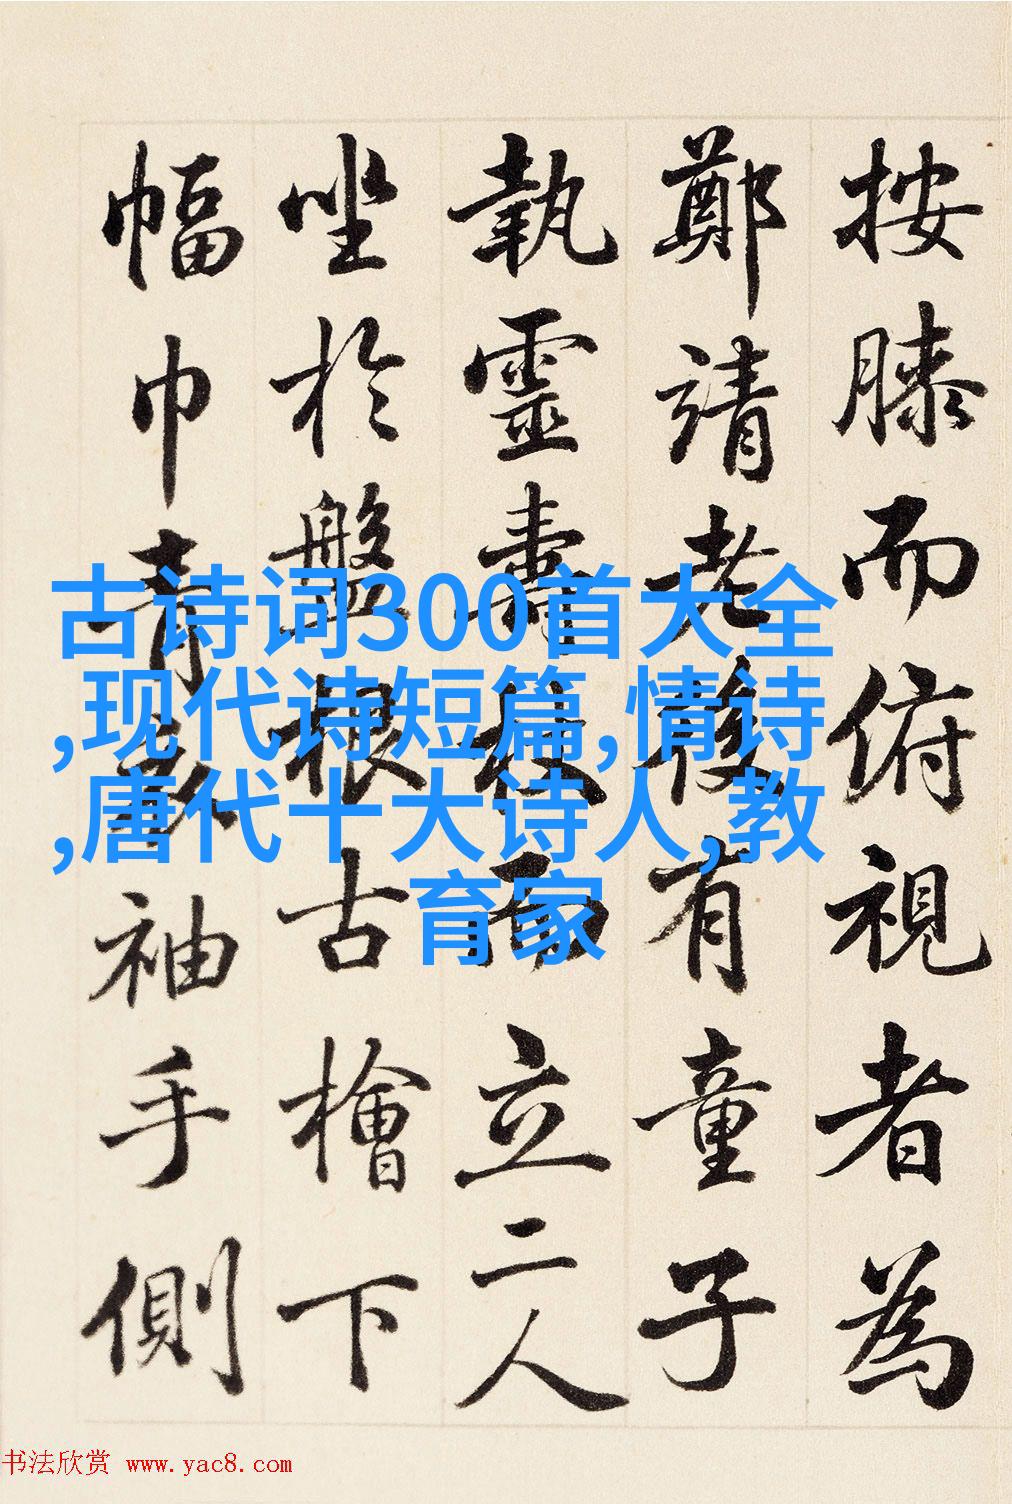 按膝而俯視者為
鄭靖老後有童子
執靈壽杖而立二人
坐於盤根古檜下
幅巾青衣袖手側
古诗词300首大全
,现代诗短篇,情诗
,唐代十大诗人,教
育家
书法欣赏 www.yac8.com